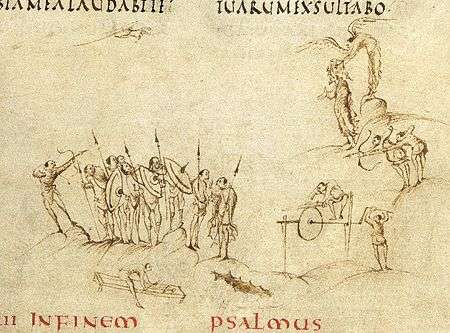 BIAMEALAUDABITTE
TUARUMEXSULTABO.
II INFINEM PSALMUS